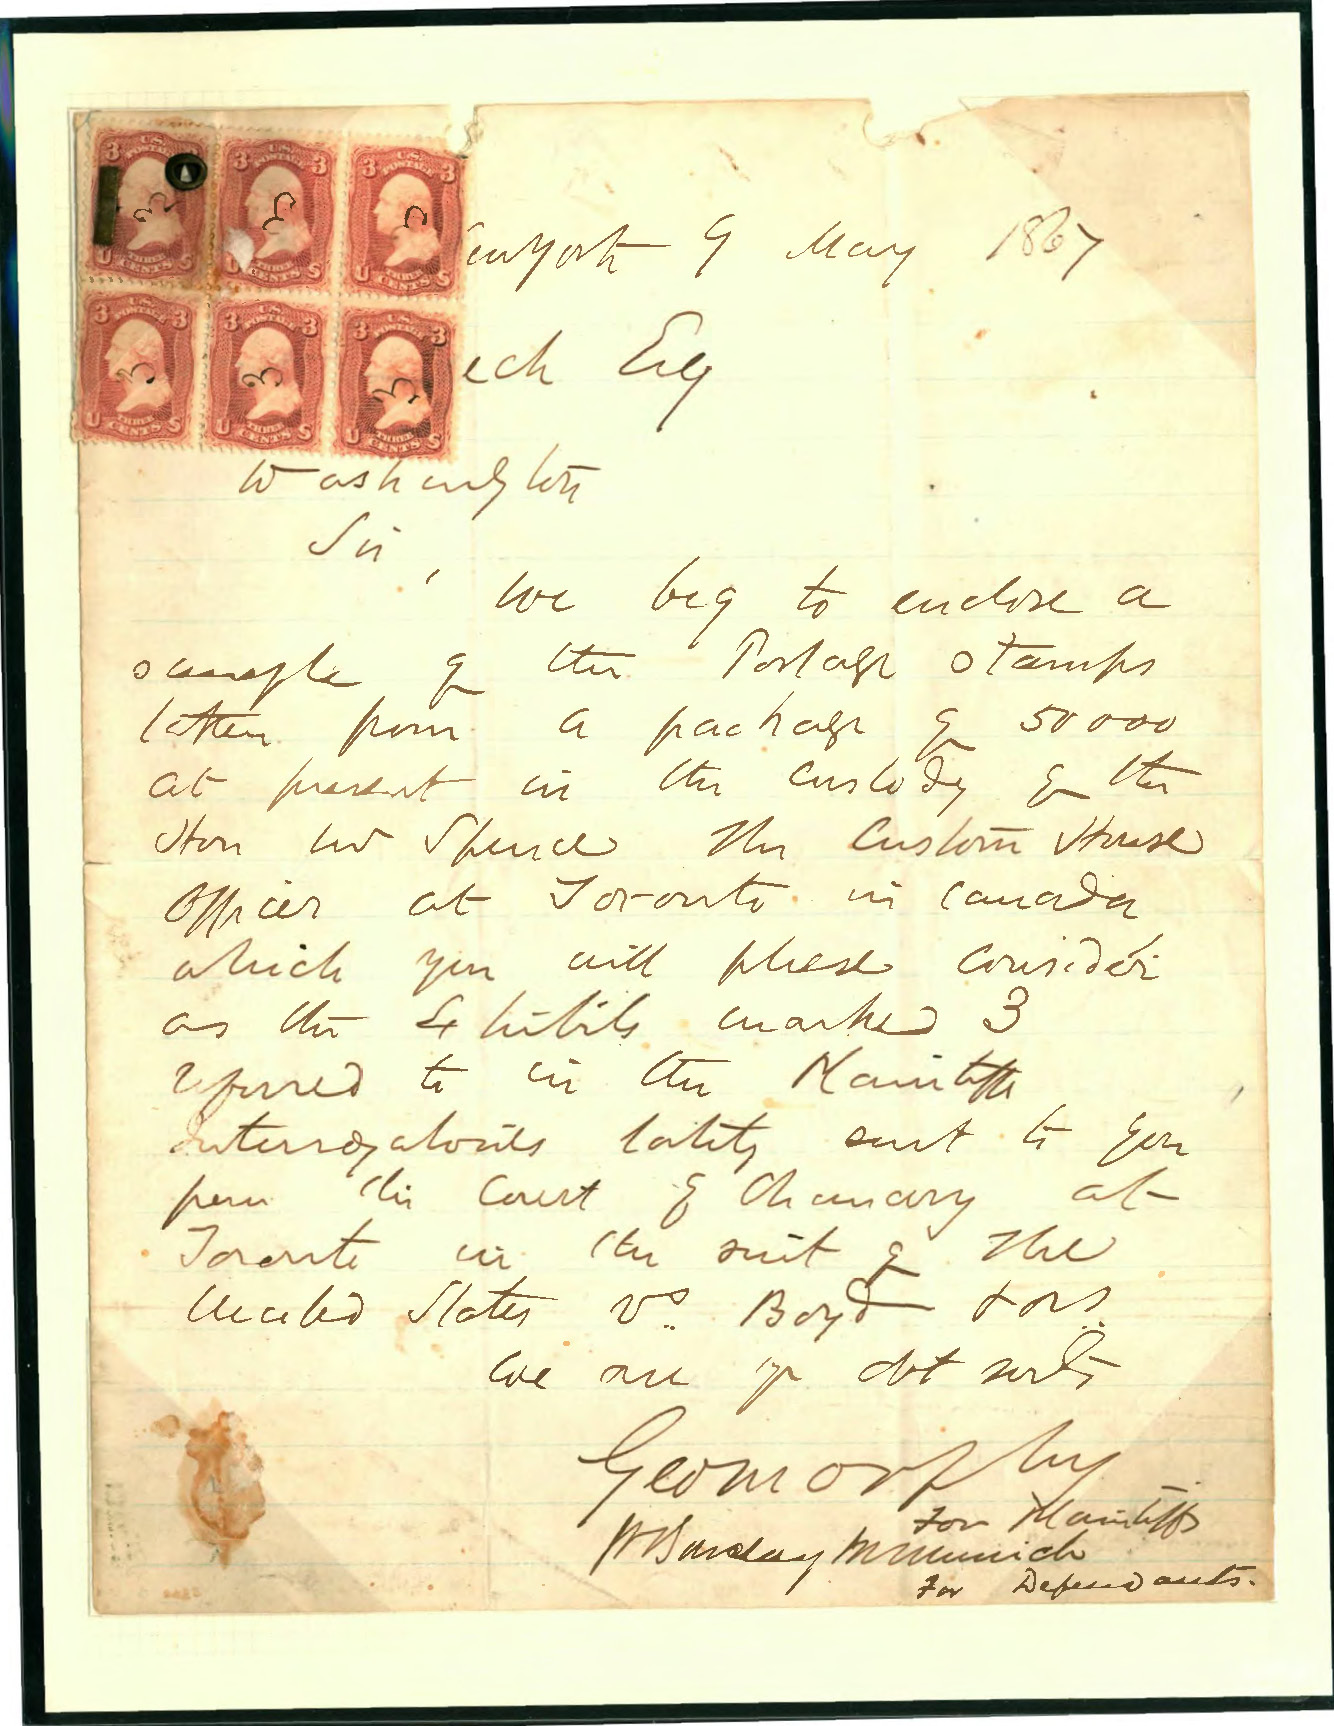 3 U.S. POSTAGE 3
3
U THREE CENTS S
3 U.S. POSTAGE 3
3
U THREE CENTS S
3 U.S. POSTAGE 3
3
U THREE CENTS S
3 U.S. POSTAGE 3
3
U THREE CENTS S
3 U.S. POSTAGE 3
3
U THREE CENTS S
3 U.S. POSTAGE 3
3
U THREE CENTS S
ewyork 9 May 1867
ech Esq
Washington
Sir,
We beg to enclose a
sample of the Postage Stamps
taken from a package of 50000
at present in the custody of the
Hon W Spence the Custom House
Officer at Toronto in Canada
which you will please consider
as the Exhibits marked 3
referred to in the Plaintiffs
Interrogatories lately sent to you
from the Court of Chancery at
Toronto in the suit of The
United States vs Boyd & ors
We are yr obt servts
Geo Murphy
For Plaintiffs
W Barclay McMurrich
For Defendants.